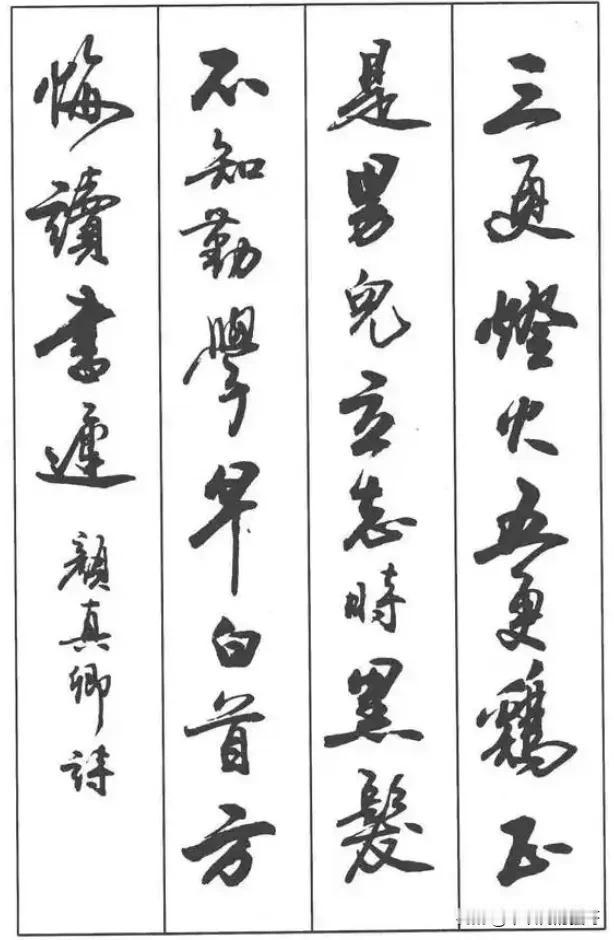 三更燈火五更鷄正
是男兒立志時黑髮
不知勤學早白首方
悔讀書遲 顏真卿詩